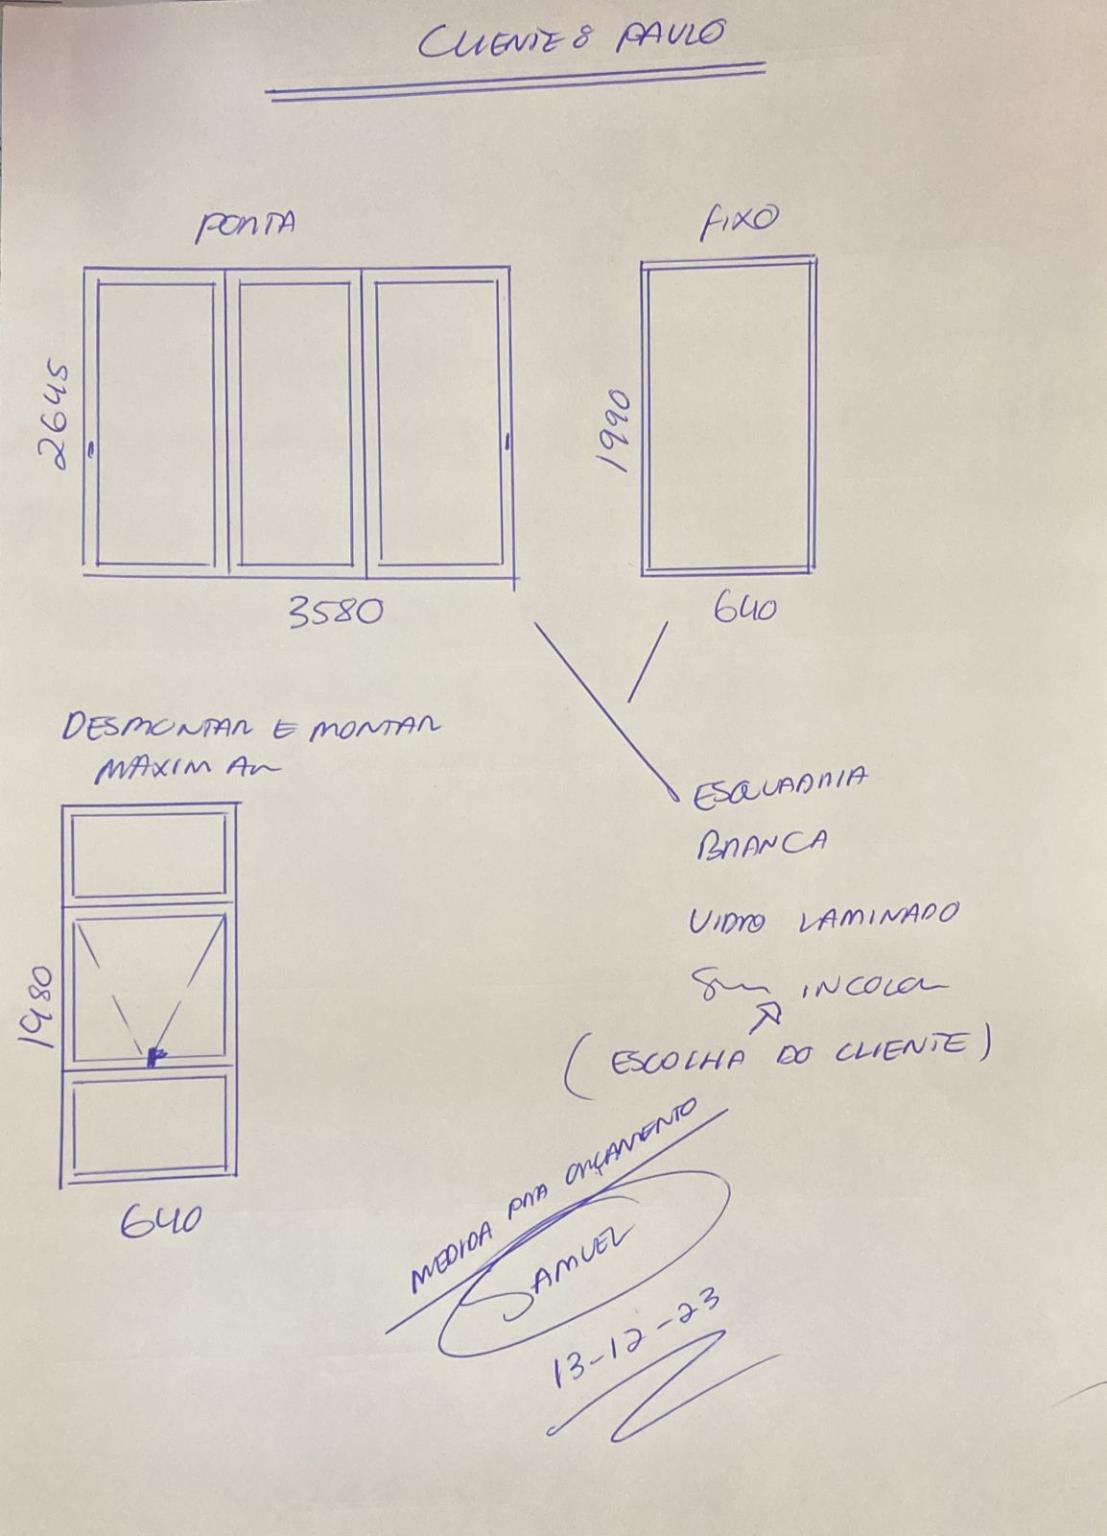 CLIENTE: PAULO
PORTA
2645
3580
FIXO
1990
640
DESMONTAR E MONTAR
MAXIM AR
1980
640
ESQUADRIA
BRANCA
VIDRO LAMINADO
INCOLOR
(ESCOLHA DO CLIENTE)
MEDIDA PRA ORÇAMENTO
SAMUEL
13-12-23